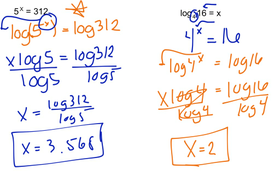 5ˣ = 312
log(5ˣ) = log312
xlog5 = log312
log5 log5
x = log312
log5
x = 3.568
log₄16 = x
4ˣ = 16
log4ˣ = log16
xlog4 = log16
log4 log4
x = 2